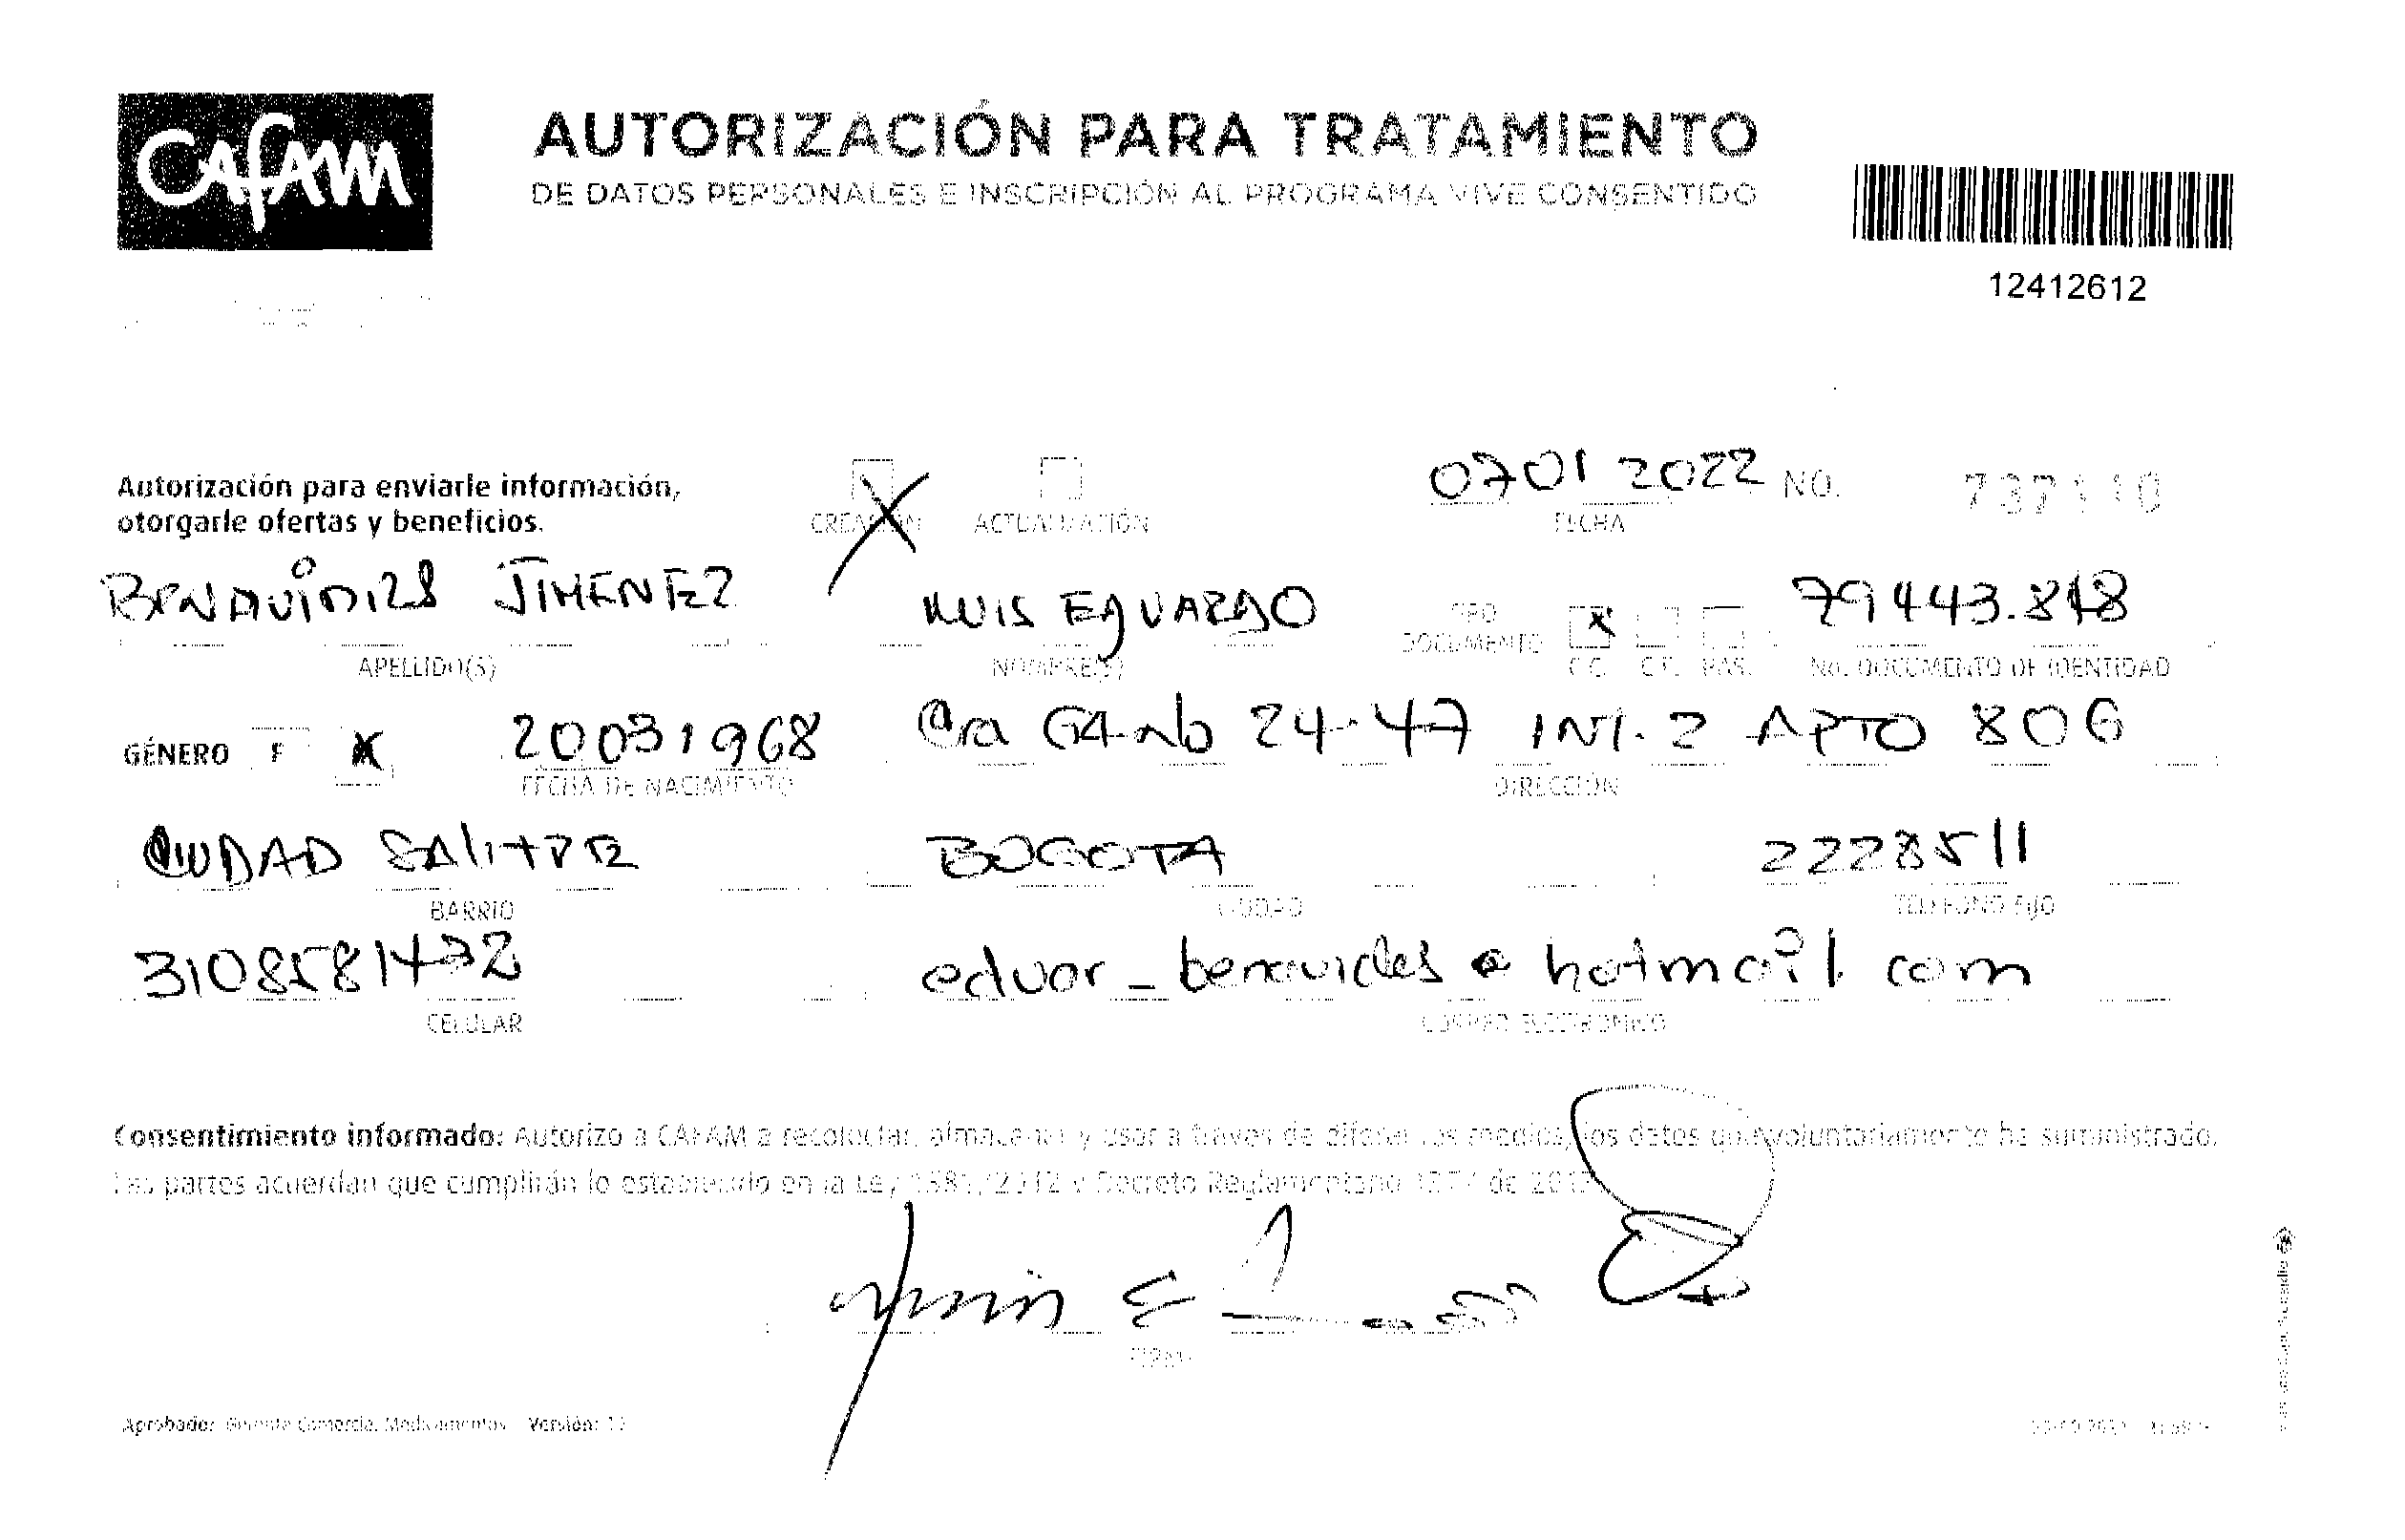 CAFAM
AUTORIZACIÓN PARA TRATAMIENTO
DE DATOS PERSONALES E INSCRIPCIÓN AL PROGRAMA VIVE CONSENTIDO
12412612
Autorización para enviarle información,
otorgarle ofertas y beneficios.
CREACIÓN ACTUALIZACIÓN
07012022 NO. 737110
FECHA
BENAVIDES JIMENEZ LUIS EDUARDO TIPO DOCUMENTO X 79443.818
APELLIDO(S) NOMBRE(S) C.C. C.E. PAS. No. DOCUMENTO DE IDENTIDAD
GÉNERO F X 20031968 Cra 64 No 24-47 INT. 2 APTO 806
FECHA DE NACIMIENTO DIRECCIÓN
CIUDAD SALITRE BOGOTA 2228511
BARRIO CIUDAD TELÉFONO FIJO
3108581432 eduar_benavides@hotmail com
CELULAR CORREO ELECTRÓNICO
Consentimiento informado: Autorizo a CAFAM a recolectar, almacenar y usar a través de diferentes medios, los datos que voluntariamente ha suministrado.
Las partes acuerdan que cumplirán lo establecido en la Ley 1581/2012 y Decreto Reglamentario 1377 de 2013
FIRMA
Aprobador Gerente Comercial Medicamentos Versión: 13